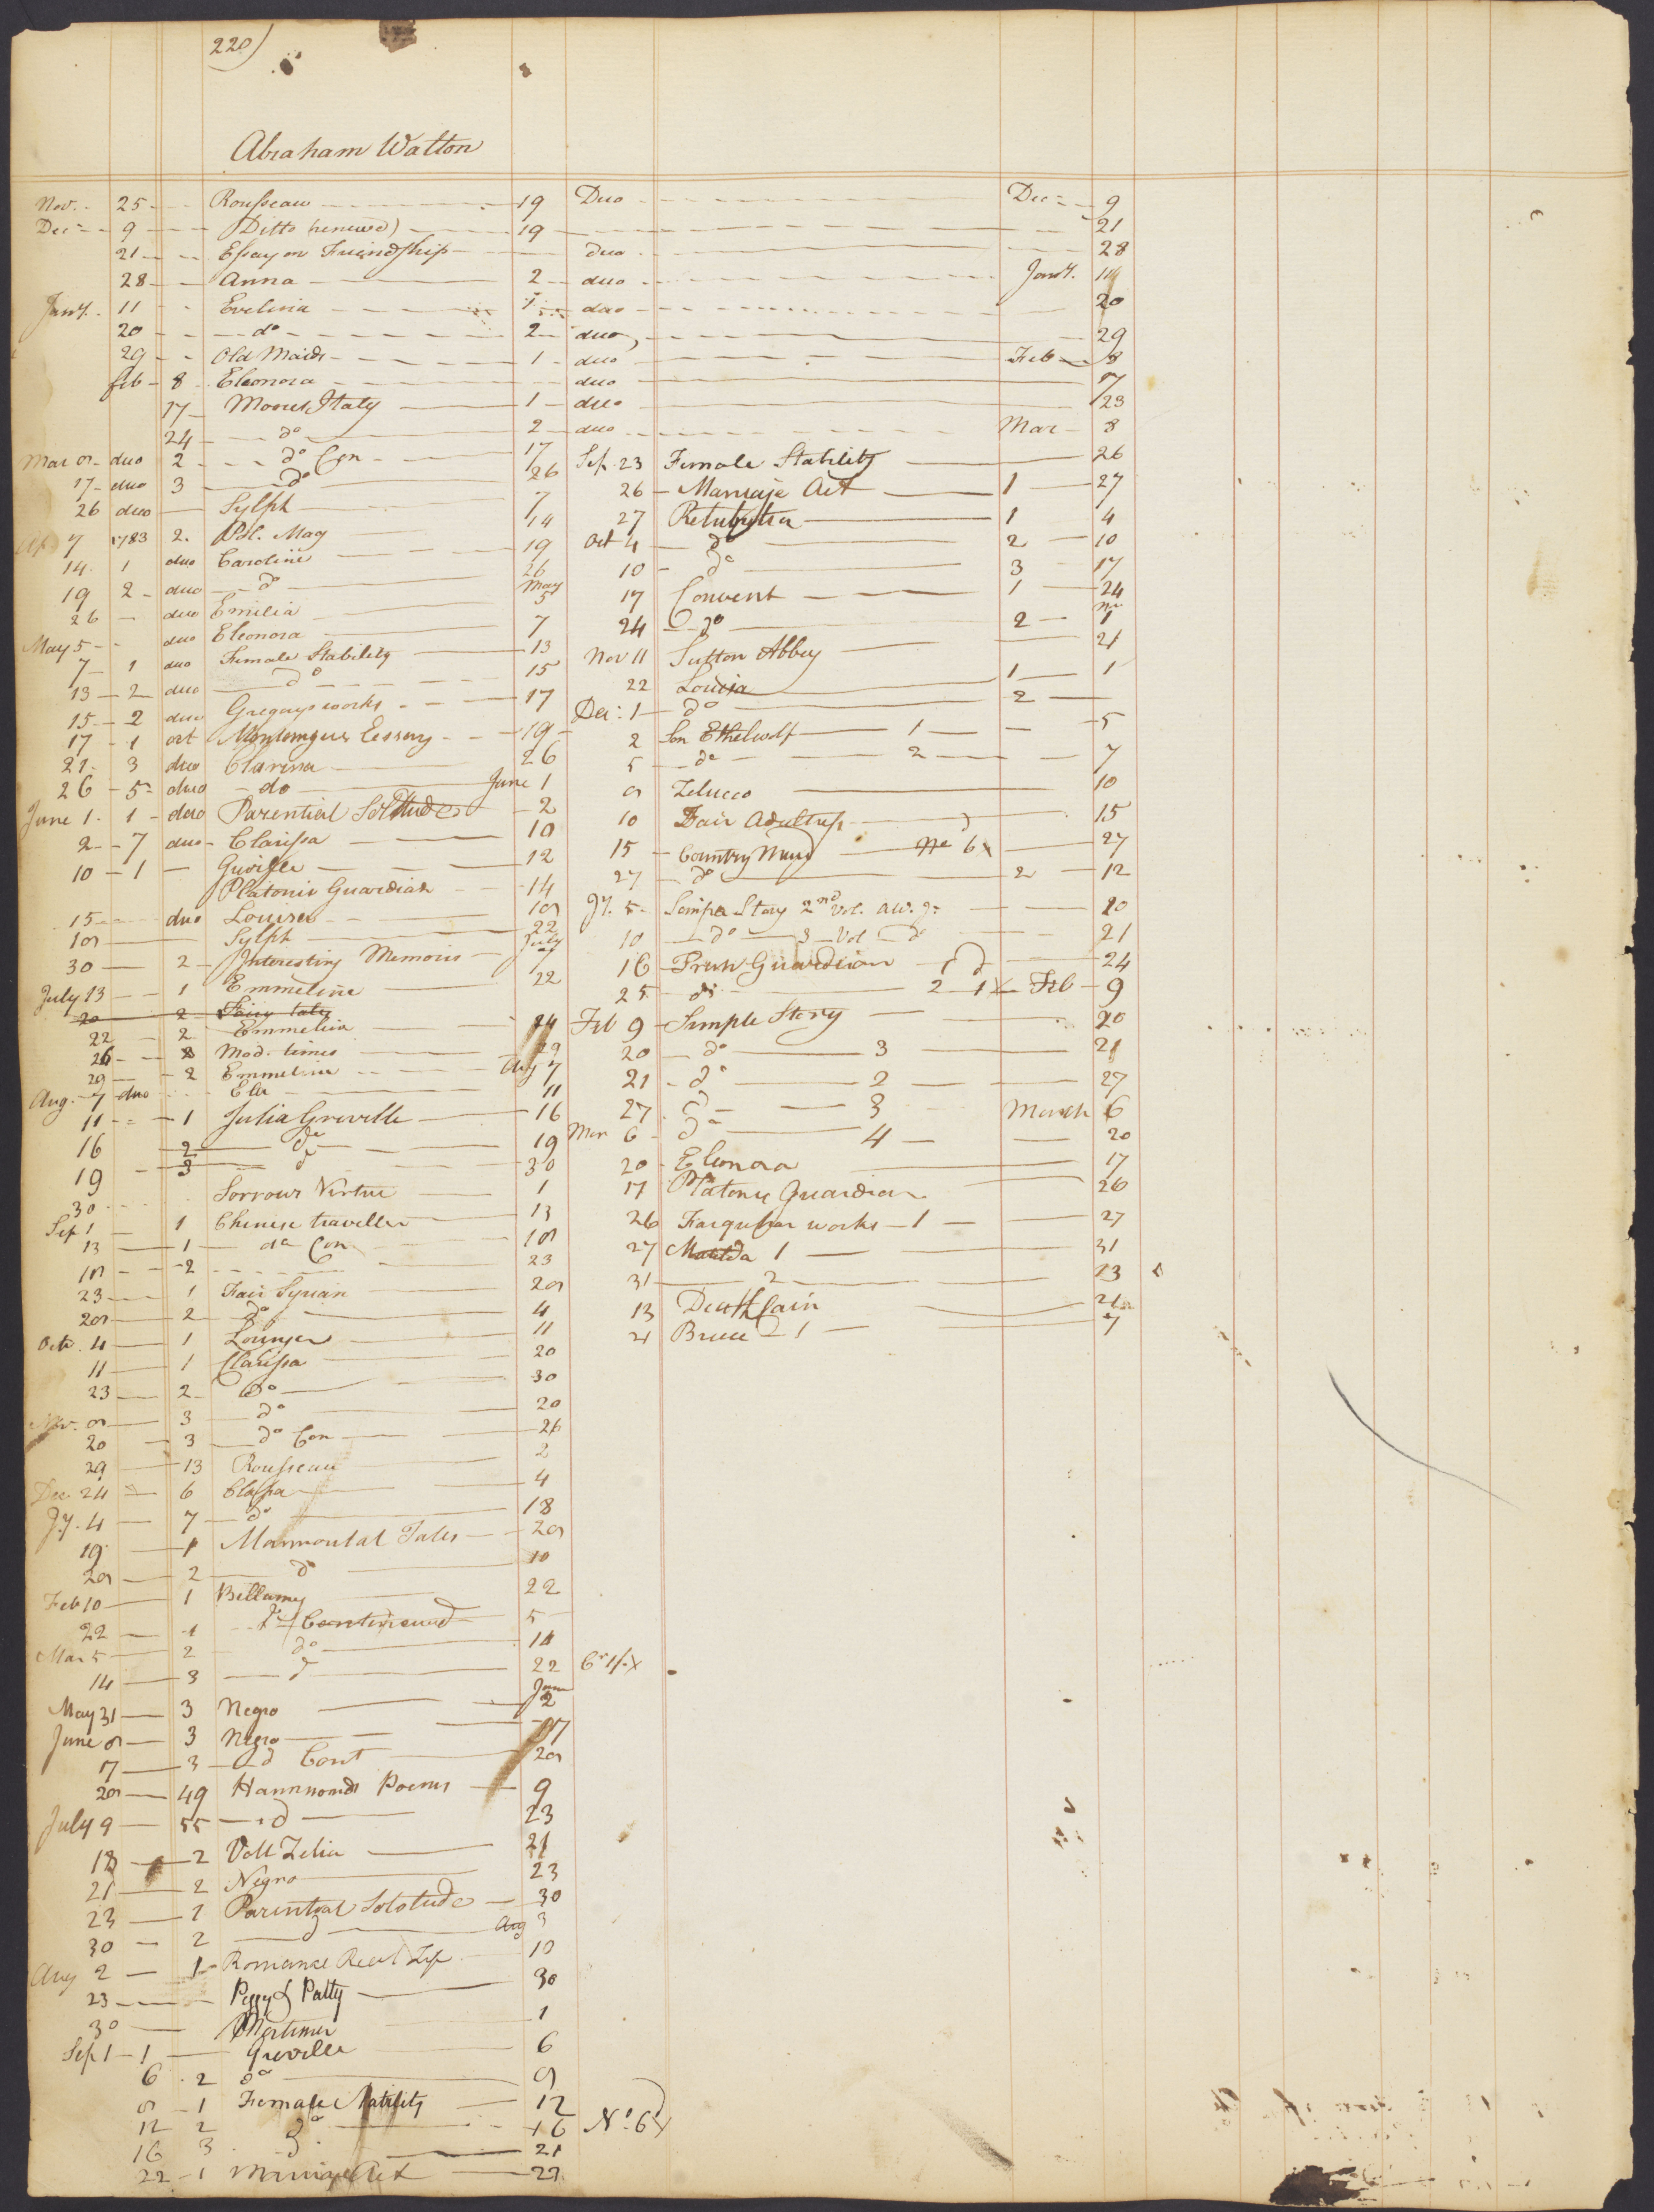 220)
Abraham Walton
Nov. 25 Rousseau 19 Duo Dec 9
Dec 9 Ditto (renewed) 19 21
21 Essay on Friendship duo 28
28 Anna 2 duo Jany. 11
Jany. 11 Evelina 1 duo 20
20 do 2 duo 29
29 Old Maids 1 duo Feb 8
Feb 8 Eleonora duo 17
17 Mores Italy 1 duo 23
24 do 2 duo Mar 8
Mar 9 duo 2 do Con 17
17 duo 3 do 26
26 duo Sylph 7
Ap 7 1783 2. Pol. Mag 14
14 1 duo Caroline 19
19 2 duo do 26
26 duo Emilia May 5
May 5 duo Eleonora 7
7 1 duo Female Stability 13
13 2 duo do 15
15 2 duo Gregorys works 17
17 1 oct Montaigues Essays 19
21 3 duo Clarissa 26
26 5 duo do June 1
June 1. 1 duo Parential Solitude 2
2 7 duo Clarissa 10
10 1 Greville 12
Platonic Guardian 14
15 duo Louisa 19
19 Sylph 22
30 2 Interesting Memoirs July 7
July 13 1 Emmeline 22
20 2 Fairy tales
22 2 Emmeline 24
26 Mod. times 29
29 2 Emmeline Aug 7
Aug. 7 duo Ela 11
11 1 Julia Greville 16
16 2 do 19
19 3 do 30
30 Sorrows Virtue 1
Sep 1 1 Chinese traveller 13
13 1 do Con 19
19 2 23
23 1 Fair Syrian 29
29 2 do 4
Octr. 4 1 Lounger 11
11 1 Clarissa 20
23 2 do 30
Nov. 9 3 do 20
20 3 do Con 26
29 13 Rousseau 2
Dec 24 6 Clarissa 4
Jy. 4 7 do 18
19 1 Marmontal Tales 29
29 2 do 10
Feb 10 1 Bellamy 22
22 1 do Continued 5
Mar 5 2 do 14
14 3 do 22
May 31 3 Negro June 2
June 9 3 Negro 17
17 3 do Cont 29
29 49 Hammonds Poems 9
July 9 55 do 23
18 2 Voll Zelia 21
21 2 Negro 23
23 1 Parintial Solotude 30
30 2 do Aug 3
Aug 2 1 Romance Real Life 10
23 Peggy & Patty 30
30 Mortimer 1
Sep 1 1 Greville 6
6 2 do 9
9 1 Female Stability 12
12 2 do 16
16 3 do 21
22 1 Marriage Act 29
Sep. 23 Female Stability 26
26 Marriaje Act 1 27
27 Retribution 1 4
Oct 4 do 2 10
10 do 3 17
17 Convent 1 24
24 do 2 Nov 1
Nov 11 Sutton Abbey 21
22 Louisa 1 1
Dec: 1 do 2
2 Son Ethelwolf 1 5
5 do 2 7
9 Zelucco 10
10 Fair Adultress 15
15 Country Maid 27
27 do 2 12
Jy. 5 Simpa Story 2nd Vol. 20
10 do 3 Vol do 21
16 Prusn Guardian 1 24
25 do 2 Feb 9
Feb 9 Simple Story 20
20 do 3 21
21 do 2 27
27 do 3 March 6
Mar 6 do 4 20
20 Elonora 17
17 Platonic Guardian 26
26 Farquhar works 1 27
27 Matilda 1 31
31 2 13
13 Death Cain 21
21 Bruce 1 7